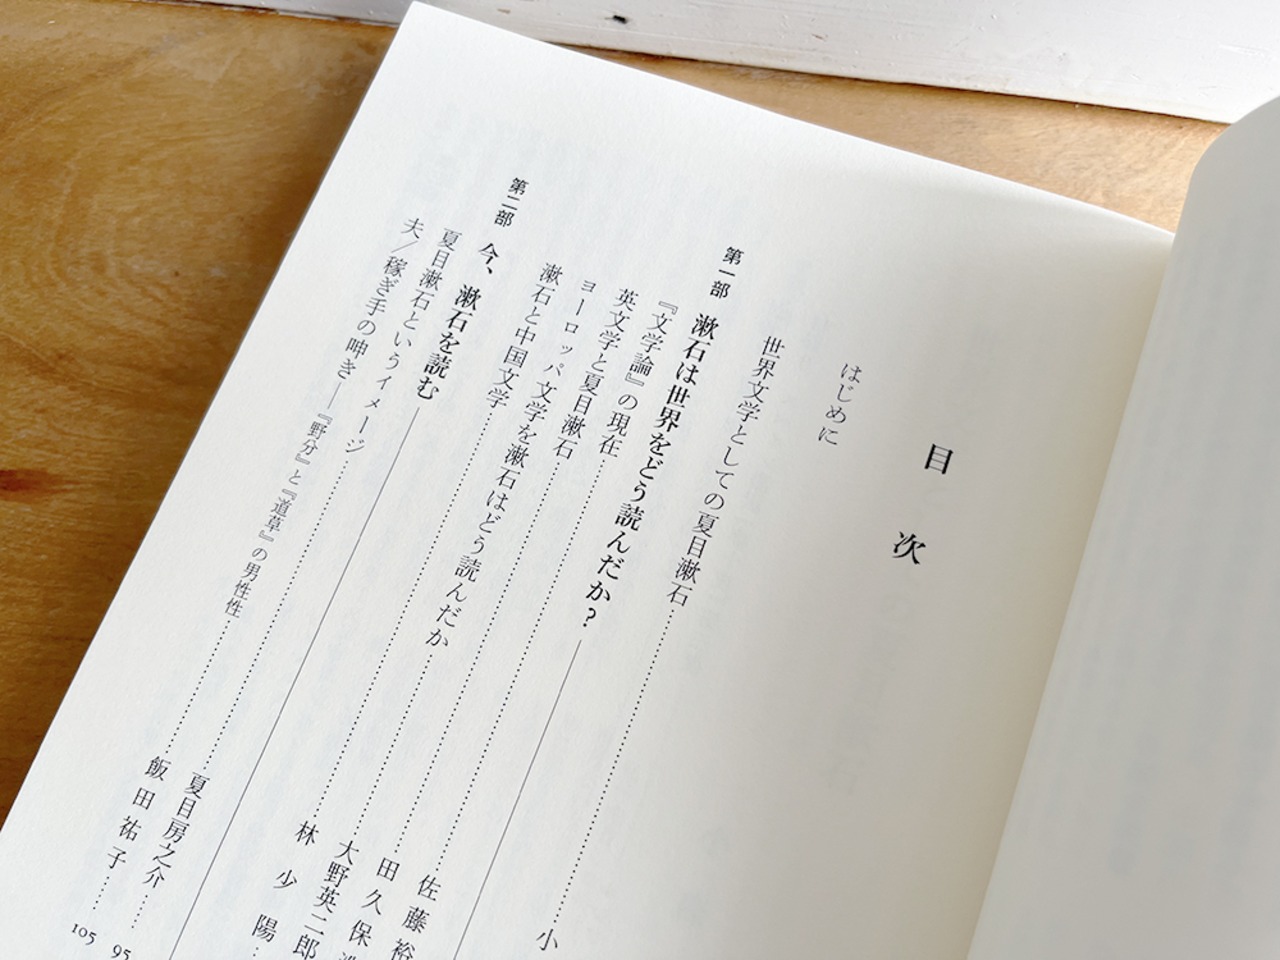 目次
はじめに
世界文学としての夏目漱石……小
第一部 漱石は世界をどう読んだか？
『文学論』の現在……佐藤裕
英文学と夏目漱石……田久保
ヨーロッパ文学を漱石はどう読んだか……大野英二郎
漱石と中国文学……林少陽……
第二部 今、漱石を読む
夏目漱石というイメージ……夏目房之介……95
夫／稼ぎ手の呻き――『野分』と『道草』の男性性……飯田祐子……105